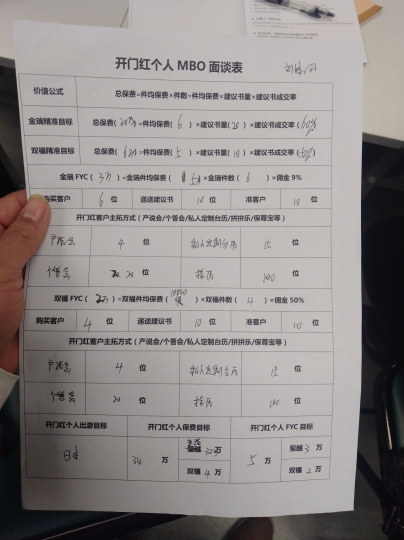 开门红个人 MBO 面谈表
价值公式 总保费=件均保费×件数=件均保费×建议书量×建议书成交率
金瑞精准目标 总保费( 万)=件均保费( 6 )×建议书量( 20 )×建议书成交率(60%)
双福精准目标 总保费( 万)=件均保费( 5 )×建议书量( 10 )×建议书成交率( )
金瑞 FYC( 3万 )=金瑞件均保费( 5万 )×金瑞件数( 6 )×佣金 9%
购买客户 6 位 递送建议书 10 位 准客户 10 位
开门红客户主拓方式(产说会/个答会/私人定制台历/拼拼乐/保尊宝等)
产说会 4 位 私人定制台历 15 位
个答会 20 位 挂历 100 位
双福 FYC( 2万 )=双福件均保费( 10000 )×双福件数( 4 )×佣金 50%
购买客户 4 位 递送建议书 10 位 准客户 10 位
开门红客户主拓方式(产说会/个答会/私人定制台历/拼拼乐/保尊宝等)
产说会 4 位 私人定制台历 15 位
个答会 20 位 挂历 100 位
开门红个人出游目标 开门红个人保费目标 开门红个人 FYC 目标
日本 34 万 玺越 30 万 5 万 玺越 3 万
双福 4 万 双福 2 万